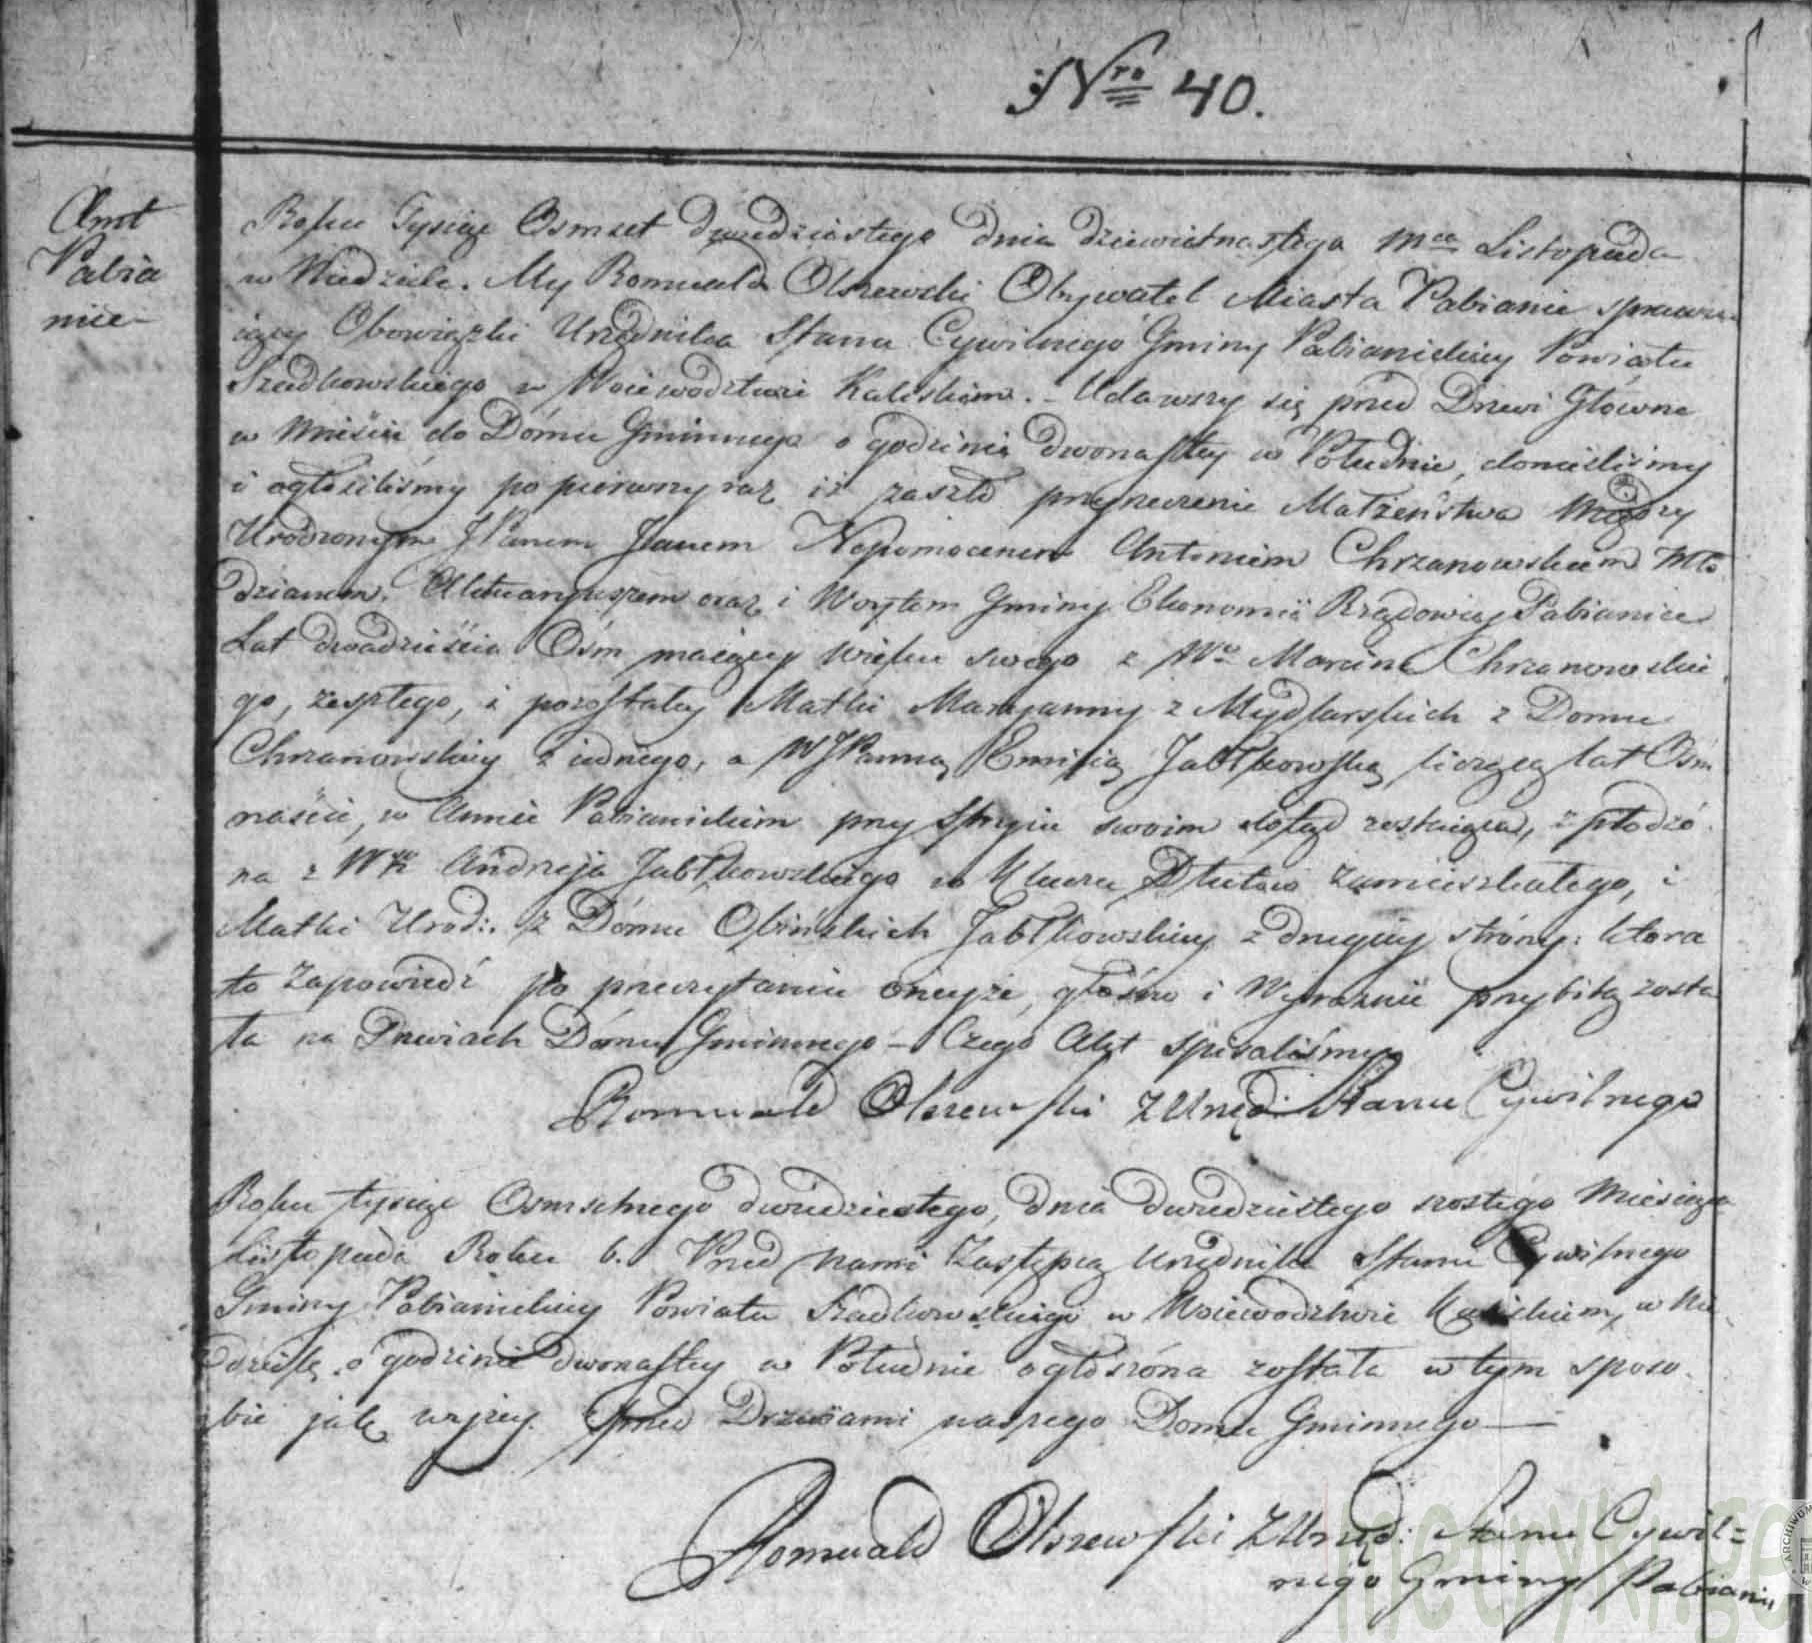 Nro 40.
Amt
Pabia
nice
Roku Tysiąc Osmset dwudziestego dnia dziewiętnastego Mca Listopada
w Niedziele. My Romuald Olszewski Obywatel Miasta Pabianic sprawu
iący Obowiązki Urzędnika Stanu Cywilnego Gminy Pabianickiey Powiatu
Szadkowskiego w Woiewodztwie Kaliskim. - Udawszy się przed Drzwi Główne
w Mieście do Dómu Gminnego o godzinie dwonastey w Południe, donieśliśmy
i ogłosiliśmy po pierwszy raz iż zaszło przyrzeczenie Małżeństwa między
Urodzonym JPanem Janem Nepomocenem Antonim Chrzanowskiem Mło
dzianem. Aktuaryuszem oraz i Woytem Gminy Ekonomii Rządowey Pabianice
Lat dwadzieścia Ośm maiącym wieku swego z Wo Marcina Chrzanowskie
go, zeszłego, i pozostałey Matki Maryanny z Mydlarskich z Domu
Chrzanowskiey z iednego, a WJPanną Emilią Jabłkowską liczącą lat Ośm
naście, w Amcie Pabianickim przy Stryiu swoim dotąd zostaiąca, z płodzo
na z Wgo Andrzeja Jabłkowskiego w Kluczu Dłutów zamieszkałego, i
Matki Urodz: z Dómu Obińskich Jabłkowskiey z drugiey stróny: ktora
to zapowiedź po przeczytaniu oneyże, głośno i Wyraźnie przybitą zosta
ła na Drzwiach Dómu Gminnego - Czego Akt spisaliśmy
Romuald Olszewski Z Urzęd: Stanu Cywilnego
Roku tysiąc Osmsetnego dwudziestego, dnia dwudziestego szostego Miesiąca
Listopada Roku b. Przed nami Zastępcą Urzednika Stanu Cywilnego
Gminy Pabianickiey Powiatu Szadkowskiego w Woiewodztwie Kaliskiem, w Nie
dzielę o godzinie dwonastey w Południe ogłoszóna została w tym sposo
bie jak wyżey przed Drzwiami naszego Domu Gminnego —
Romuald Olszewski Z Urzęd: Stanu Cywil=
nego Gminy Pabianic
metryki.ge